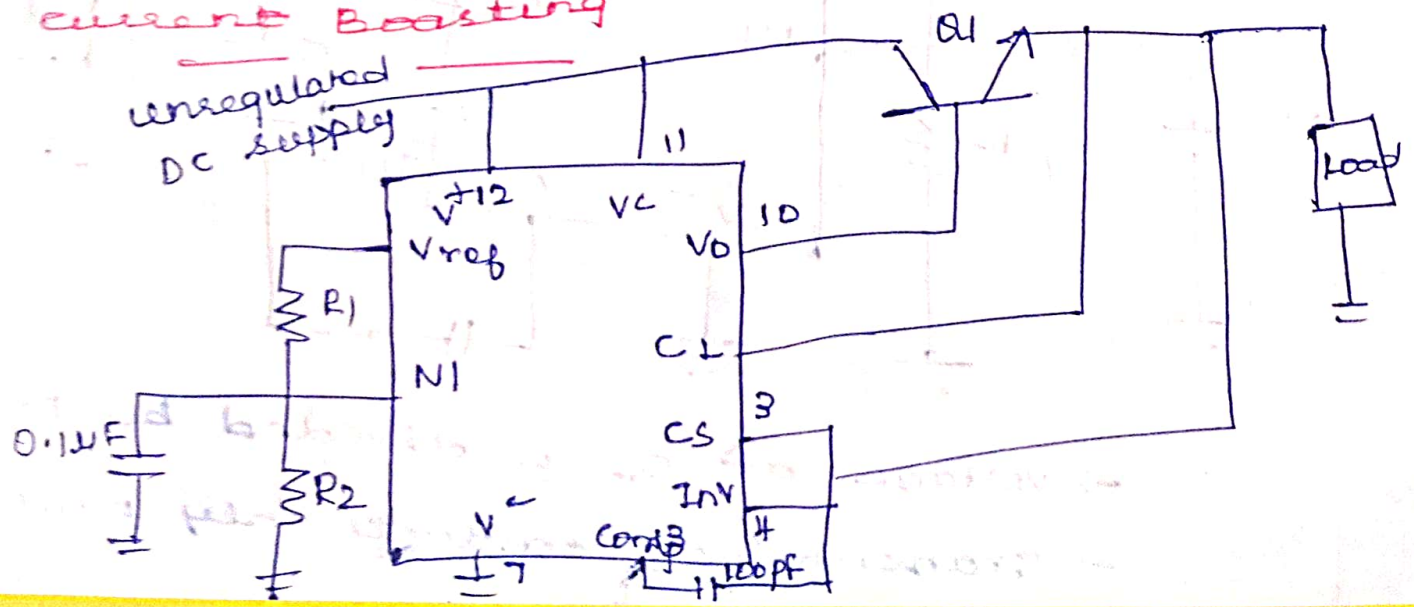 Current Boosting
unregulated
DC supply
Q1
Load
11
V+ 12
VC
10
Vref
VO
R1
CL
NI
3
0.1µF
CS
R2
InV
4
V-
Comp
13
7
100pf